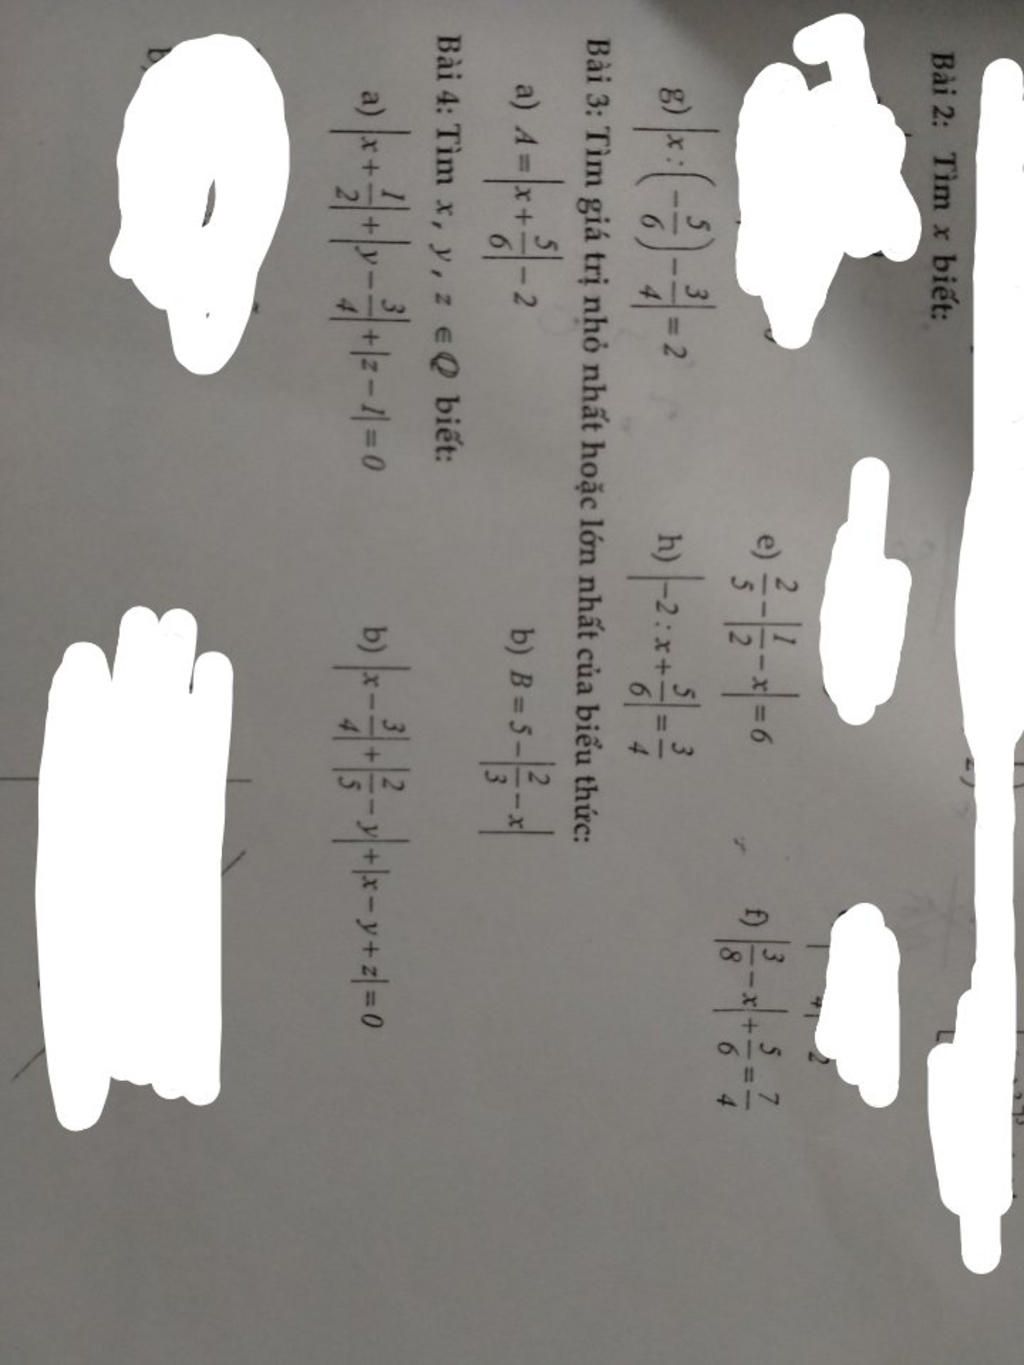 Bài 2: Tìm x biết:
e) 2/5 - |1/2 - x| = 6
f) |3/8 - x| + 5/6 = 7/4
g) |x : (-5/6) - 3/4| = 2
h) |-2 : x + 5/6| = 3/4
Bài 3: Tìm giá trị nhỏ nhất hoặc lớn nhất của biểu thức:
a) A = |x + 5/6| - 2
b) B = 5 - |2/3 - x|
Bài 4: Tìm x, y, z ∈ Q biết:
a) |x + 1/2| + |y - 3/4| + |z - 1| = 0
b) |x - 3/4| + |2/5 - y| + |x - y + z| = 0